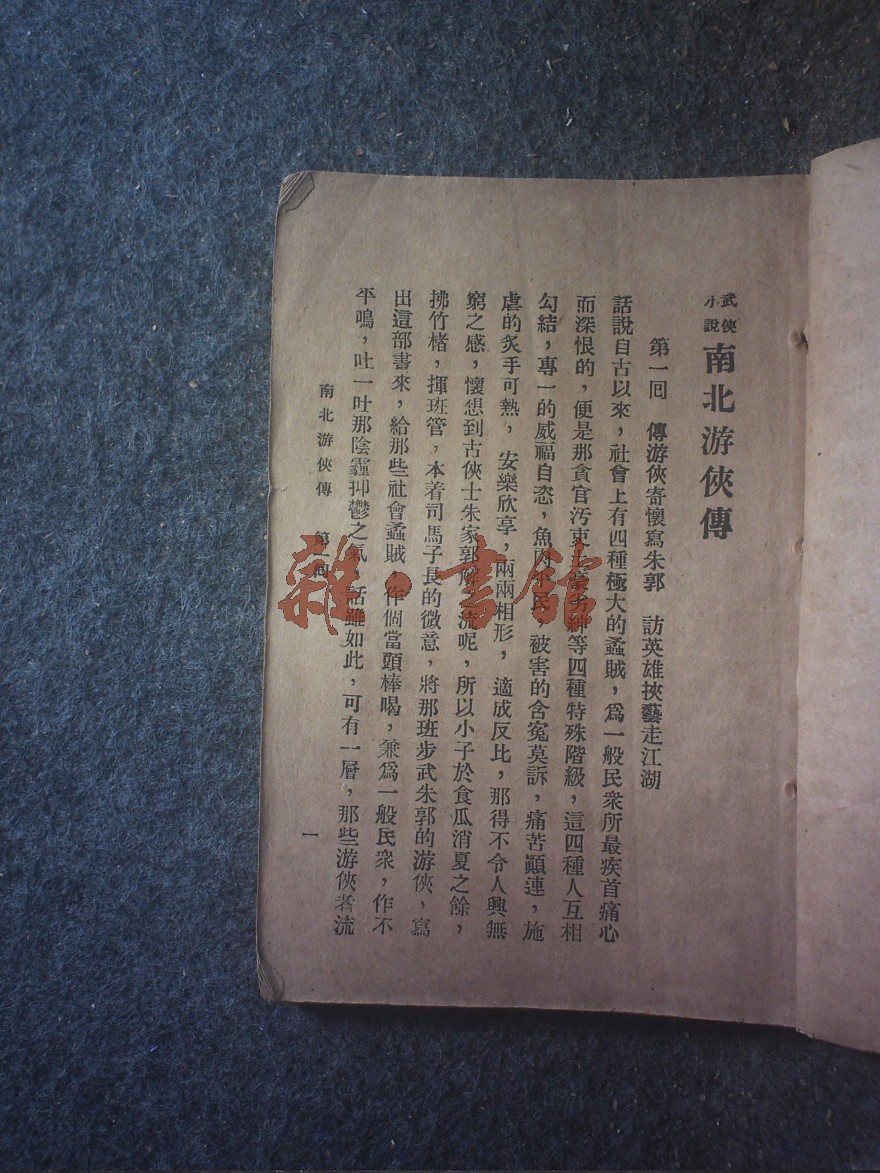 武俠小說
南北游俠傳
第一回　傳游俠寄懷寫朱郭　訪英雄挾藝走江湖
話說自古以來，社會上有四種極大的蟊賊，爲一般民衆所最疾首痛心
而深恨的，便是那貪官汚吏土豪劣紳等四種特殊階級，這四種人互相
勾結，專一的威福自恣，魚肉小民，被害的含冤莫訴，痛苦顚連，施
虐的炙手可熱，安樂欣享，兩兩相形，適成反比，那得不令人興無
窮之感，懷想到古俠士朱家郭解一流呢，所以小子於食瓜消夏之餘，
拂竹楮，揮班管，本着司馬子長的微意，將那班步武朱郭的游俠，寫
出這部書來，給那些社會蟊賊，作個當頭棒喝，兼爲一般民衆，作不
平鳴，吐一吐那陰霾抑鬱之氣，話雖如此，可有一層，那些游俠者流
南北游俠傳　第一回
一
雜·書館